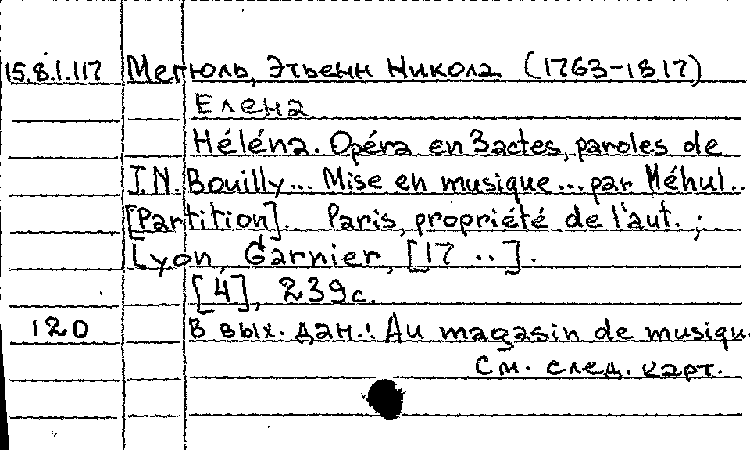 15.8.1.117 Мегюль, Этьенн Никола (1763-1817)
Елена
Héléna. Opéra en 3 actes, paroles de
J.N. Bouilly... Mise en musique... par Méhul..
[Partition]. Paris, propriété de l'aut. ;
Lyon, Garnier, [17 ..].
[4], 239 с.
120 В вых. дан.: Au magasin de musiqu
См. след. карт.